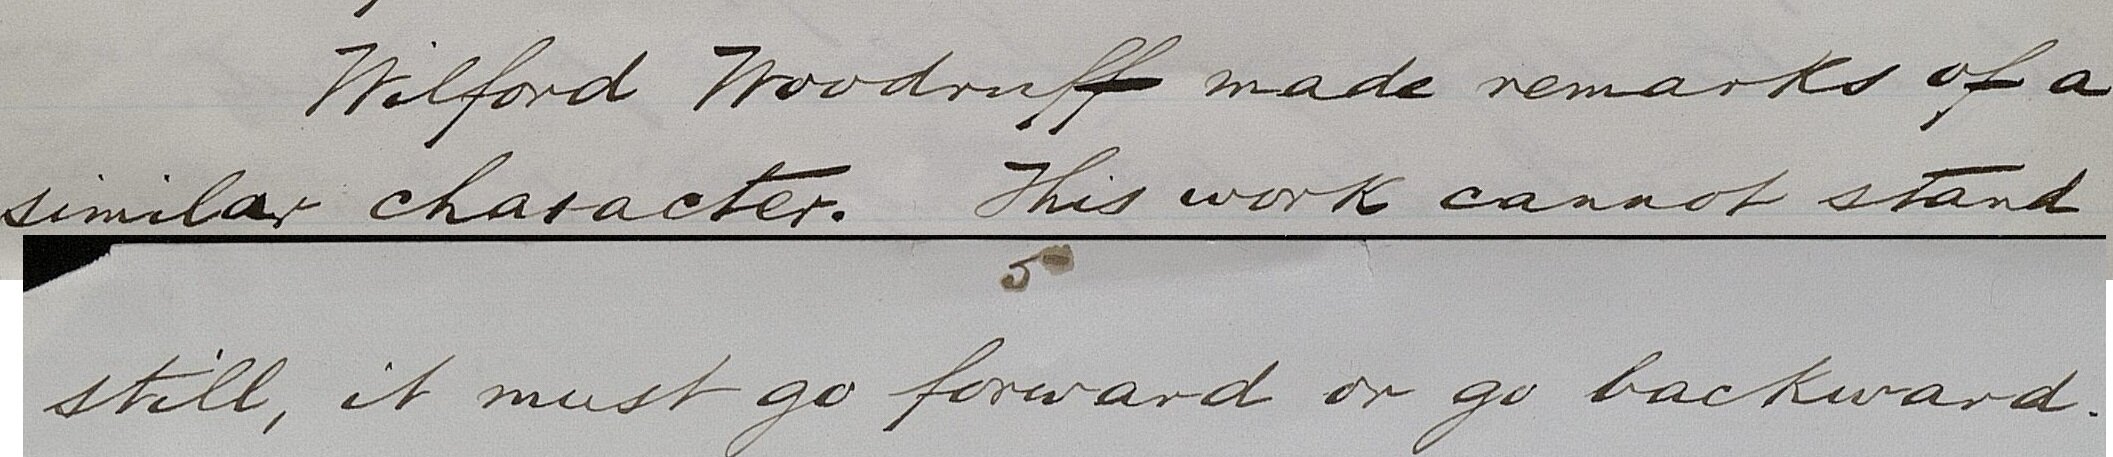 Wilford Woodruff made remarks of a
similar character. This work cannot stand
5
still, it must go forward or go backward.